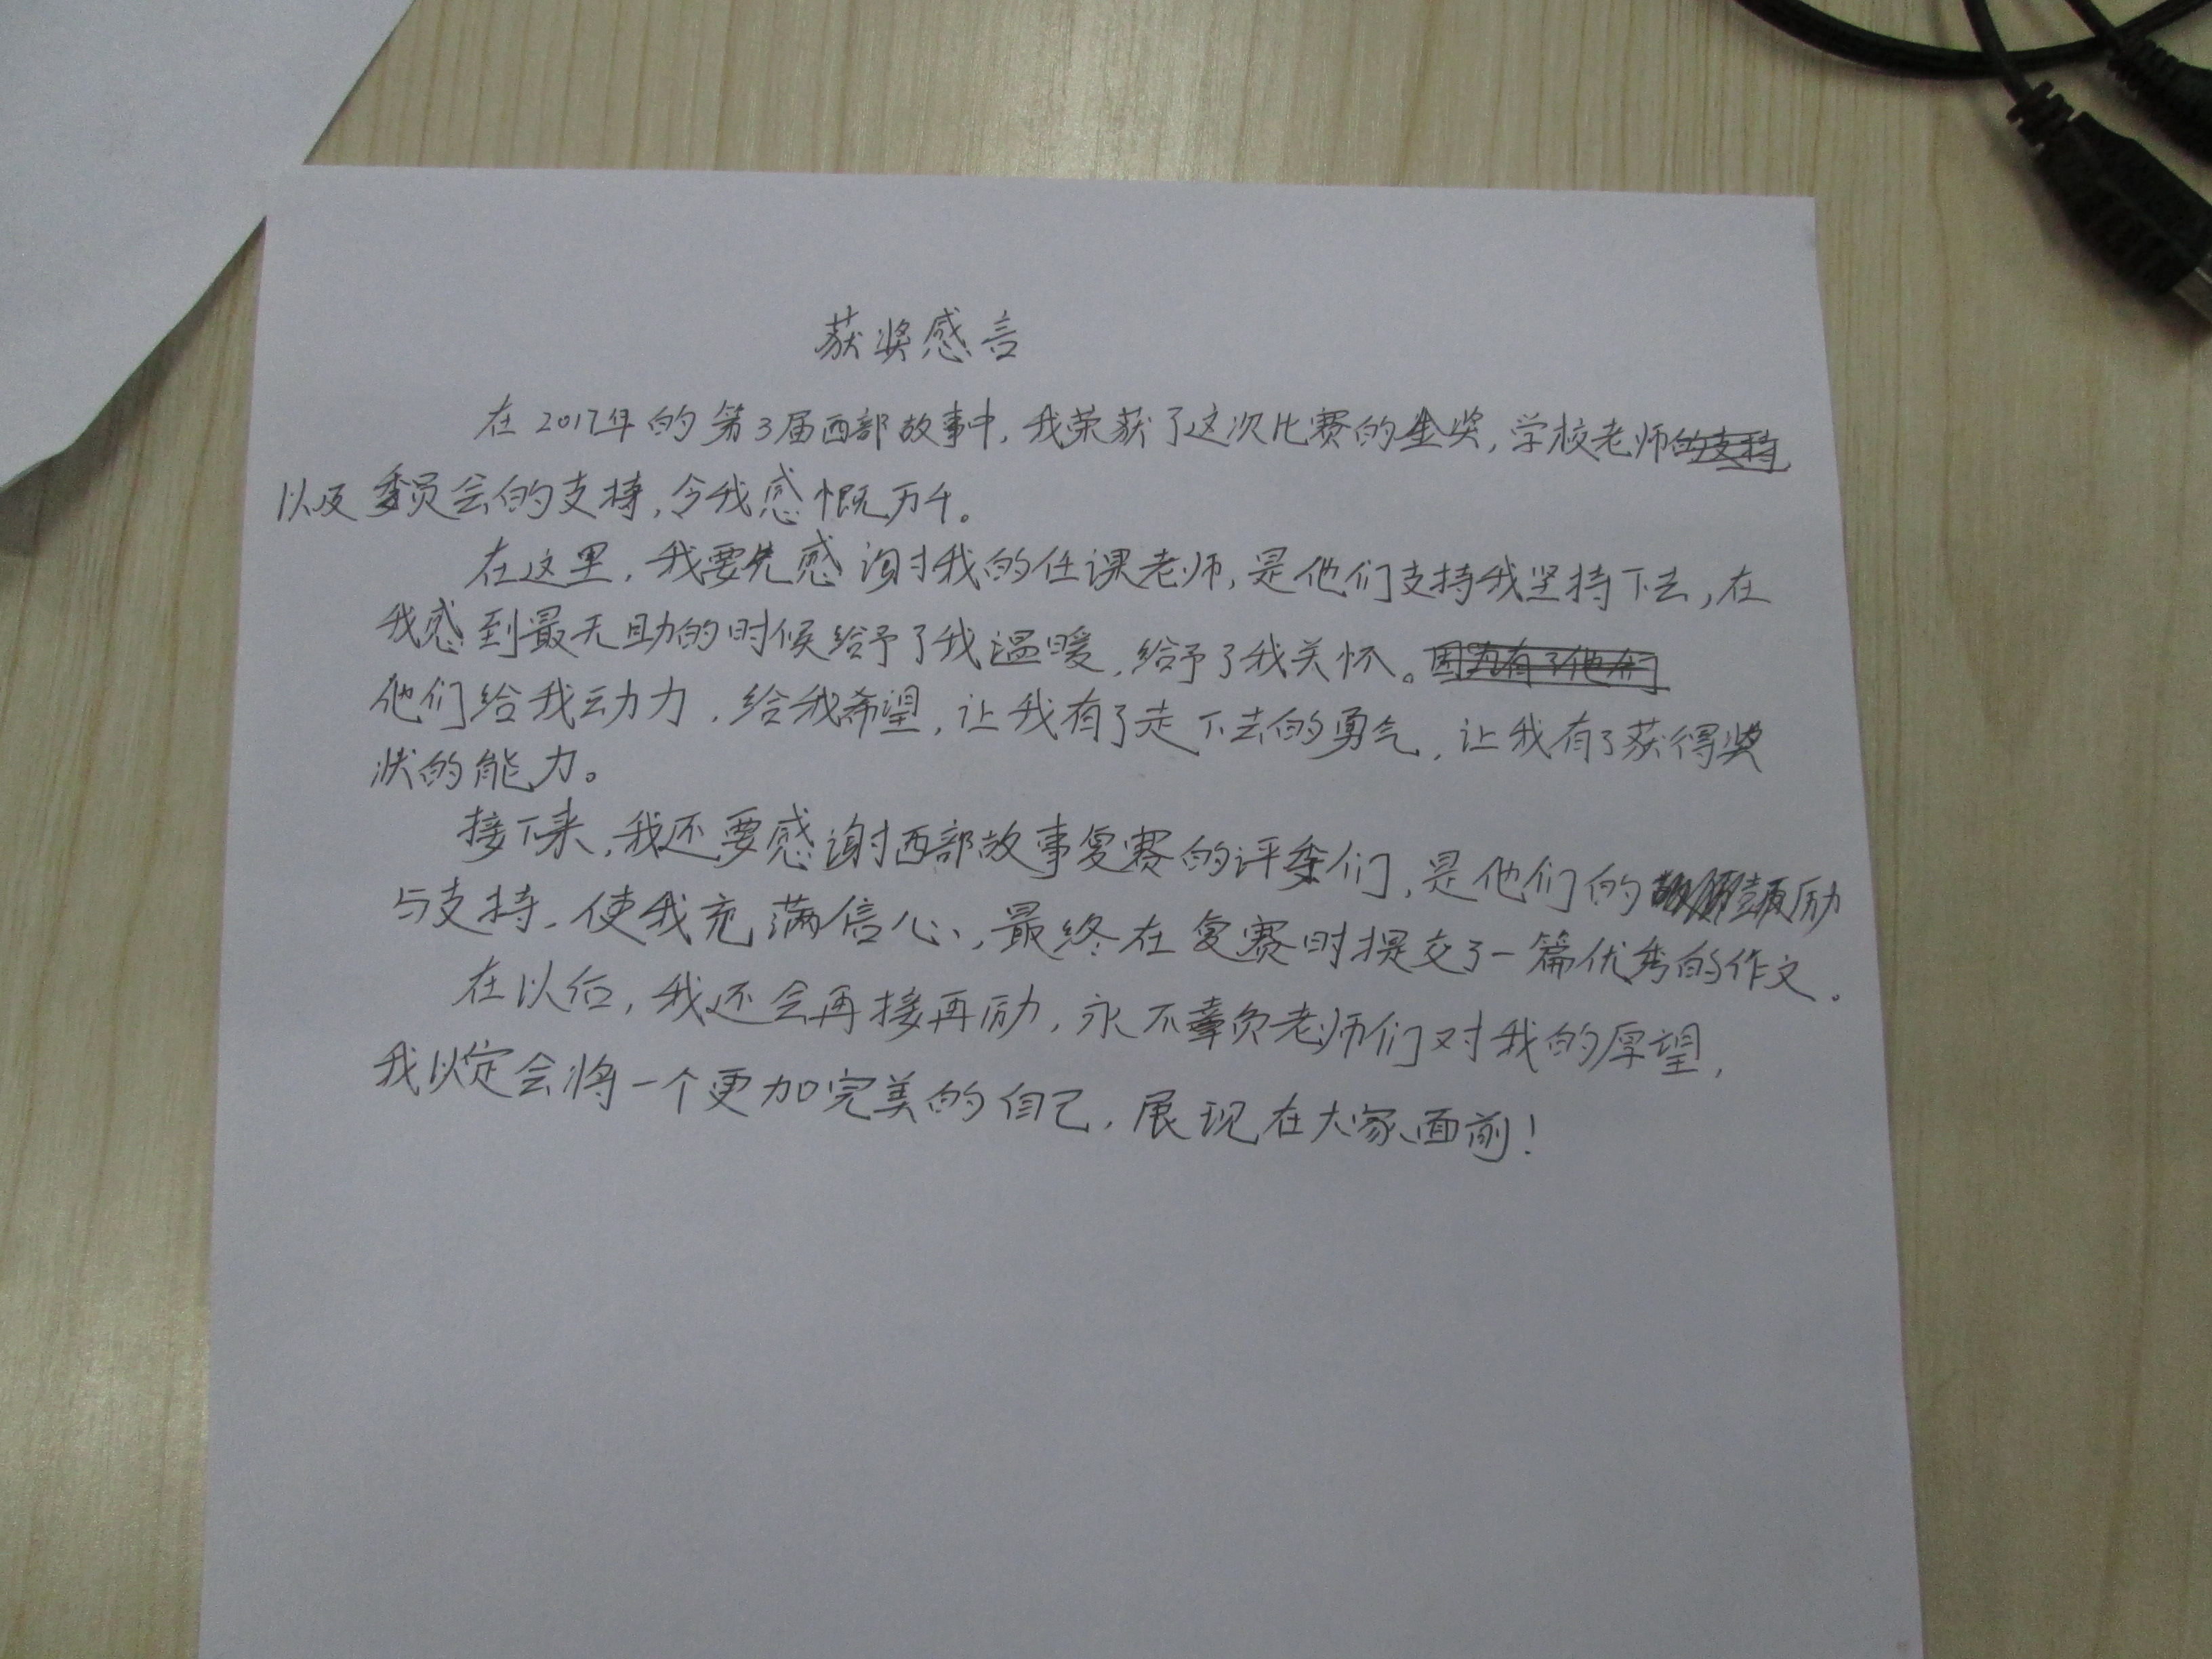 获奖感言
在2017年的第3届西部故事中，我荣获了这次比赛的金奖，学校老师的支持
以及委员会的支持，令我感慨万千。
在这里，我要先感谢我的任课老师，是他们支持我坚持下去，在
我感到最无助的时候给予了我温暖，给予了我关怀。因为有了他们
他们给我动力，给我希望，让我有了走下去的勇气，让我有了获得奖
状的能力。
接下来，我还要感谢西部故事复赛的评委们，是他们的鼓励
与支持，使我充满信心，最终在复赛时提交了一篇优秀的作文。
在以后，我还会再接再励，永不辜负老师们对我的厚望，
我定会将一个更加完美的自己，展现在大家面前！